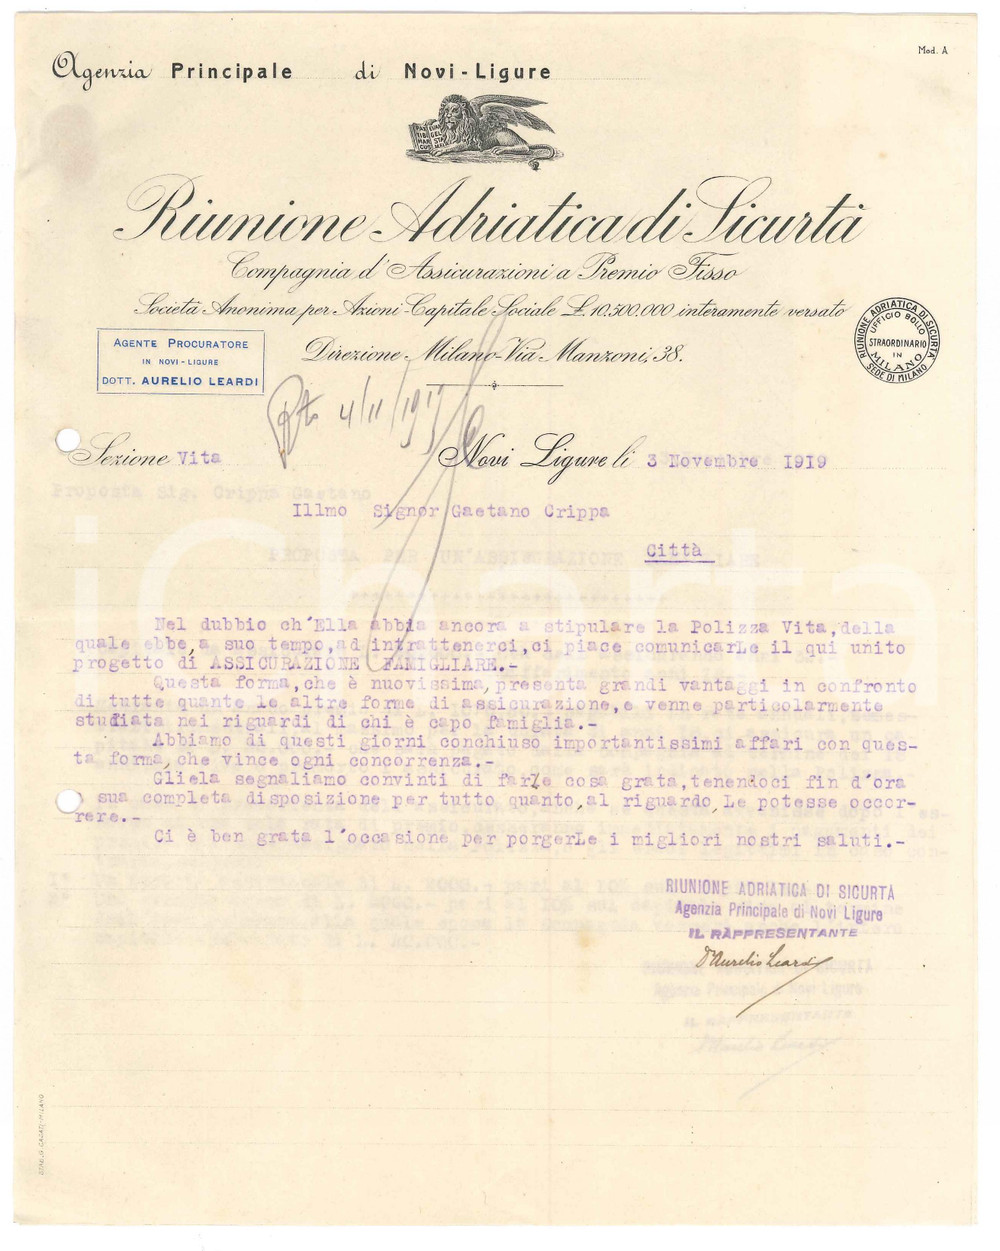 Mod. A
Agenzia Principale di Novi-Ligure
PAX TIBI MAR CUS EVAN GEL STA MEUS
Riunione Adriatica di Sicurtà
Compagnia d'Assicurazioni a Premio Fisso
Società Anonima per Azioni - Capitale Sociale £. 10.500.000 interamente versato
Direzione - Milano - Via Manzoni, 38.
AGENTE PROCURATORE
IN NOVI-LIGURE
DOTT. AURELIO LEARDI
RIUNIONE ADRIATICA DI SICURTÀ
UFFICIO BOLLO
STRAORDINARIO
IN
MILANO
SEDE DI MILANO
4/11/1919
Sezione Vita
Novi Ligure li 3 Novembre 1919
Proposta Sig. Crippa Gaetano
Illmo Signor Gaetano Crippa
PROPOSTA PER UN'ASSICURAZIONE
Città
iCharta
Nel dubbio ch'Ella abbia ancora a stipulare la Polizza Vita, della
quale ebbe, a suo tempo, ad intrattenerci, ci piace comunicarLe il qui unito
progetto di ASSICURAZIONE FAMIGLIARE.-
Questa forma, che è nuovissima, presenta grandi vantaggi in confronto
di tutte quante le altre forme di assicurazione, e venne particolarmente
studiata nei riguardi di chi è capo famiglia.-
Abbiamo di questi giorni conchiuso importantissimi affari con ques-
ta forma, che vince ogni concorrenza.-
Gliela segnaliamo convinti di farLe cosa grata, tenendoci fin d'ora
a sua completa disposizione per tutto quanto, al riguardo, Le potesse occor-
rere.-
Ci è ben grata l'occasione per porgerLe i migliori nostri saluti.-
RIUNIONE ADRIATICA DI SICURTÀ
Agenzia Principale di Novi Ligure
IL RAPPRESENTANTE
D Aurelio Leardi